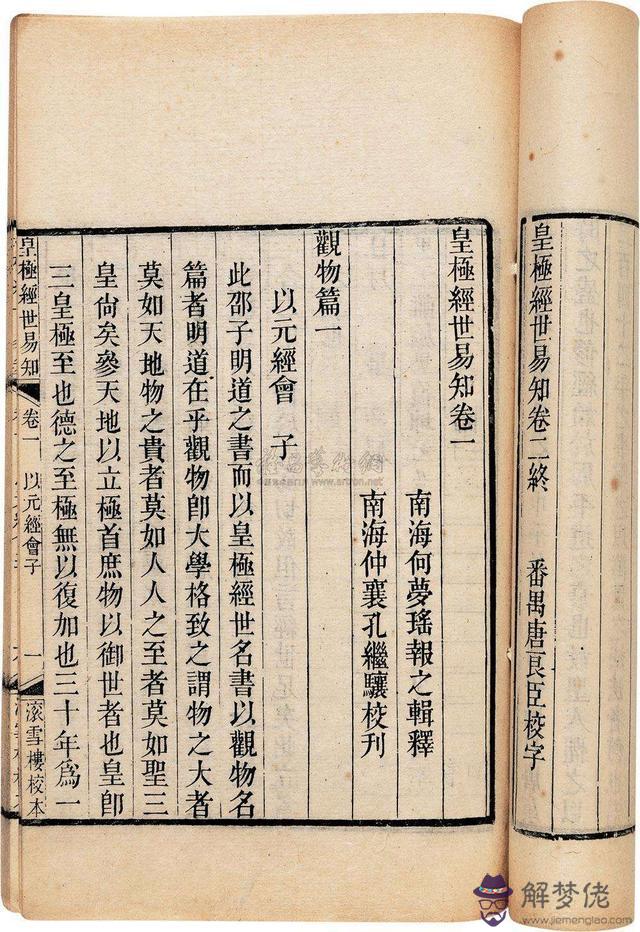 皇極經世易知卷二終　番禺唐良臣校字
皇極經世易知卷一
南海何夢瑤報之輯釋
南海仲襄孔繼驤校刊
觀物篇一
以元經會　子
此邵子明道之書而以皇極經世名書以觀物名
篇者明道在乎觀物卽大學格致之謂物之大者
莫如天地物之貴者莫如人人之至者莫如聖三
皇尙矣參天地以立極首庶物以御世者也皇卽
三皇極至也德之至極無以復加也三十年爲一
皇極經世易知　卷一　以元經會子　一　滾雪樓校本
www.artron.net
解梦佬
www.jiemenglao.com